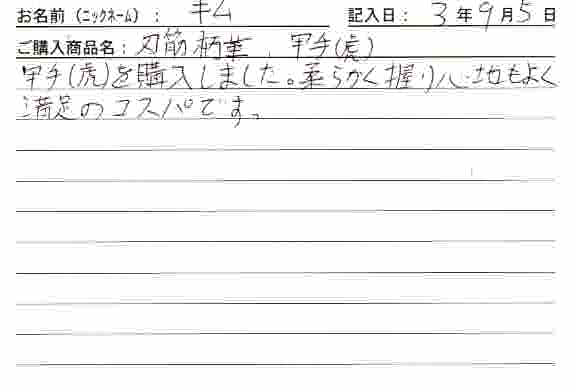 お名前（ニックネーム）： キム 記入日： 3 年 9 月 5 日
ご購入商品名： 刃筋柄革、甲手(虎)
甲手(虎)を購入しました。柔らかく握り心地もよく
満足のコスパです。